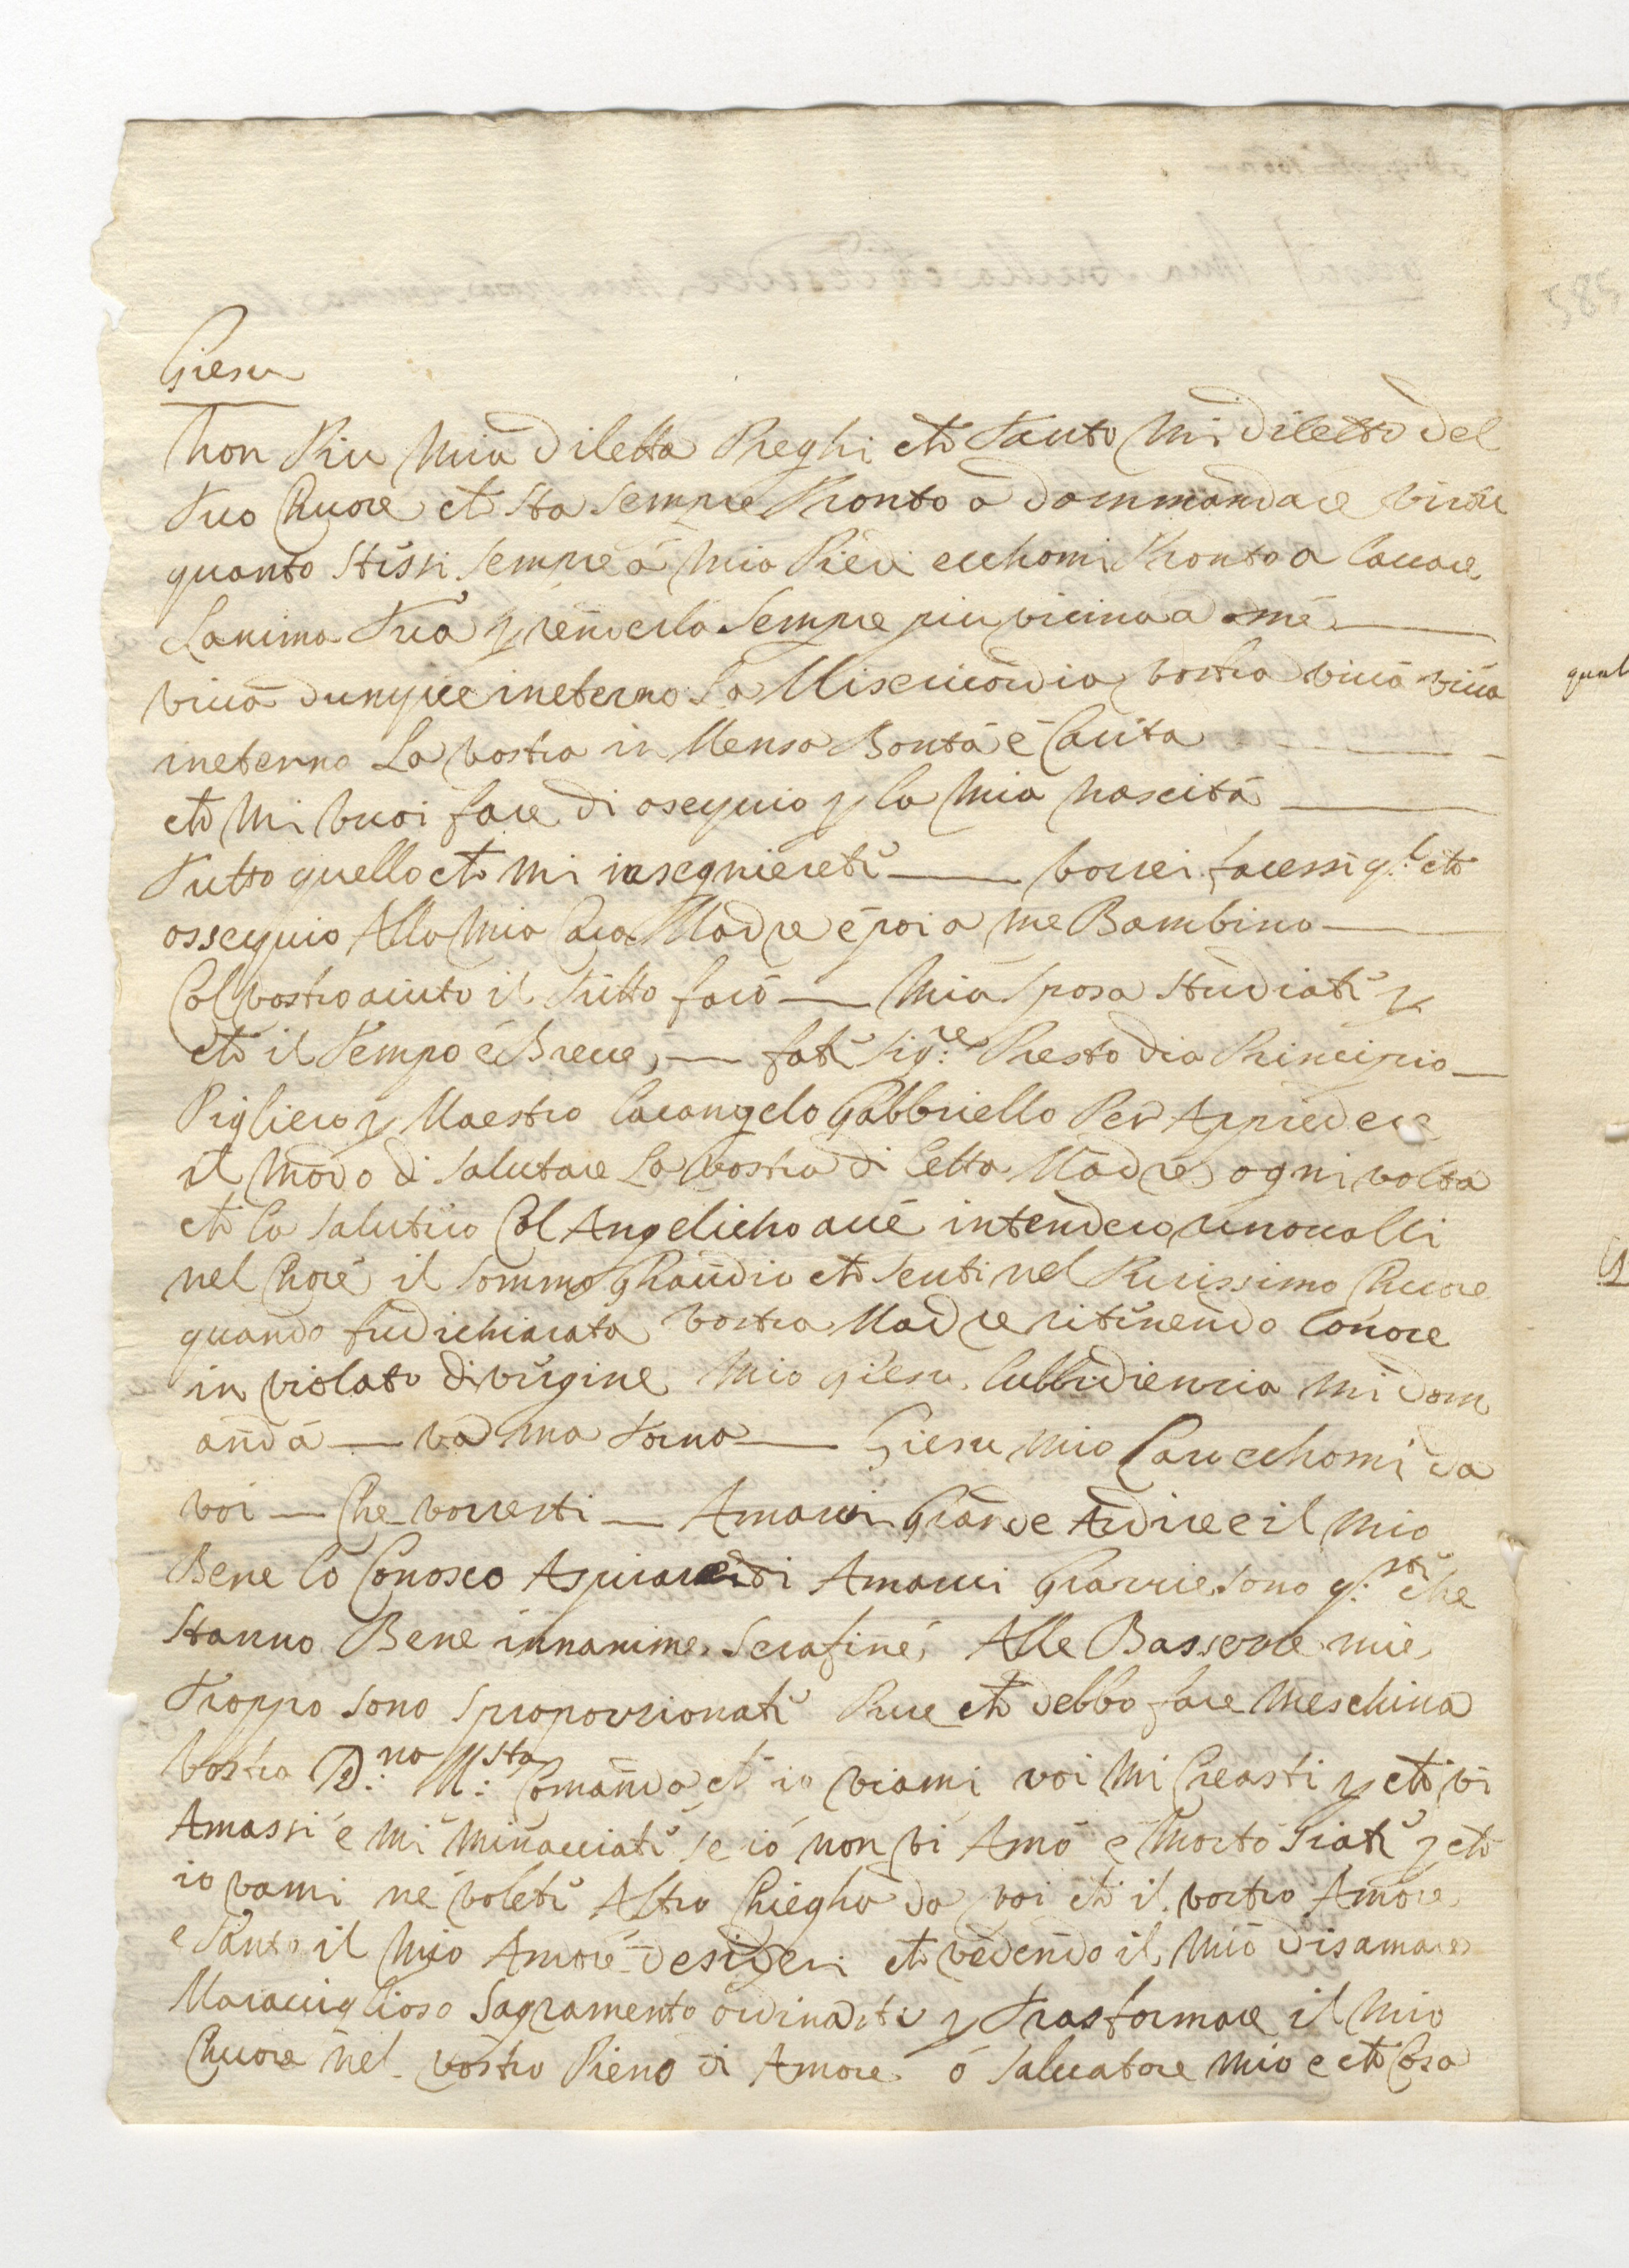 Giesu
Non Piu Mia Diletta Preghi che Tanto Mi Diletto Del
Tuo Chuore che sta sempre Pronto a dommandare virtu
quanto stissi sempre a Mia Piedi ecchomi Pronto a lauare
Lanima Tua p renderla sempre piu vicina a me
viua dunque ineterno la Misericordia vostra viua viua
ineterno La vostra in Mensa Bonta e Carita
che Mi vuoi fare di osequio p la Mia nascita
Tutto quello che mi insegniereti vorrei facessi q.l che
ossequio Alla Mia Cara Madre e poi a me Bambino
Col vostro aiuto il Tutto faro Mia sposa studiati p
che il Tempo e Breue, fati sig.re Presto dia Principio
Pigliero p Maestro Larcangelo Gabbriello Per Apriedere
il modo di salutare La vostra diletta Madre ogni volta
che la salutiro Col Angelicho aue intendero rinoualli
nel Chore il sommo ghaudio che senti nel Purissimo Chuore
quando fu dichiarata vostra Madre ritinendo lonore
in violato di virgine Mio giesu lubbidienzia mi dom
anda va ma torna Giesu mio Caro echomi da
voi Che vorresti Amarui Grande Ardire e il mio
Bene lo Conosco Aspirare di Amarui Grazzie sono q.sti che
stanno Bene innanime serafine Alle Bassezze mie
Troppo sono sproporzionati Pure che debbo fare Meschina
vostra D.na M.sta Comanda che io viami voi Mi Creasti p che vi
Amassi e mi minacciati se io non vi Amo e Morto siati p che
io vami ne voleti Altro Chiegho da voi che il vostro Amore
e Tanto il Mio Amore desideri che vedendo il mio disamare
Marauiglioso sagramento ordinasti p Trasformare il Mio
Chuore nel vostro Pieno di Amore o saluatore mio e che Cosa